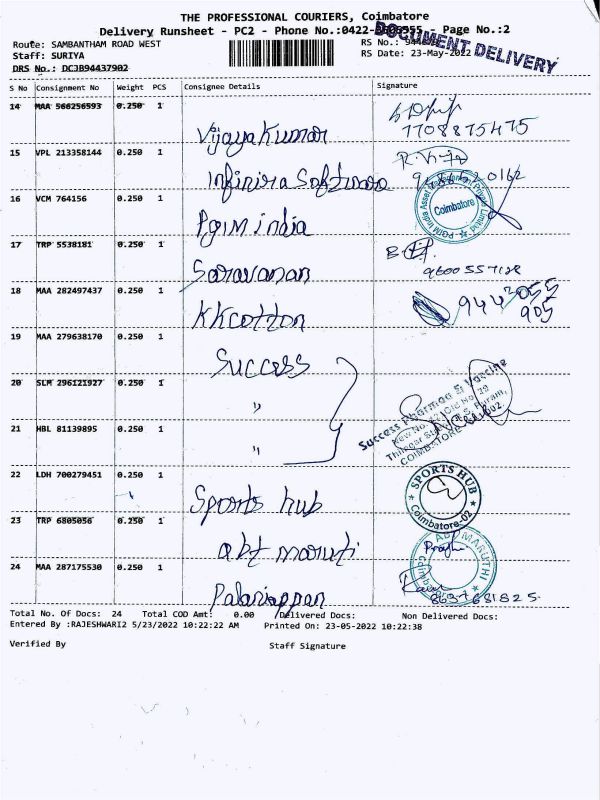 THE PROFESSIONAL COURIERS, Coimbatore
Delivery Runsheet - PC2 - Phone No.:0422- Page No.:2
DOCUMENT DELIVERY
Route: SAMBANTHAM ROAD WEST
RS No.:
Staff: SURIYA
RS Date: 23-May-2022
DRS No.: DCJB94437902
S No Consignment No Weight PCS Consignee Details Signature
14 MAA 566256593 0.250 1
Vijaya Kumar
7708875475
15 VPL 213358144 0.250 1
Software
16 VCM 764156 0.250 1
Pgim india
PGIM India Asset Management Private Limited
Coimbatore
17 TRP 5538181 0.250 1
Saravanan
18 MAA 282497437 0.250 1
KKcotton
19 MAA 279638170 0.250 1
Success
20 SLM 296121927 0.250 1
"
Success Pharmaa & Vaccine
21 HBL 81139895 0.250 1
"
COIMBATORE
22 LDH 700279451 0.250 1
Sports hub
SPORTS HUB
Coimbatore-02
23 TRP 6805056 0.250 1
abt maruti
ABT MARUTHI
Coimbatore
24 MAA 287175530 0.250 1
Palaniappan
8637681825
Total No. Of Docs: 24 Total COD Amt: 0.00 Delivered Docs: Non Delivered Docs:
Entered By :RAJESHWARI2 5/23/2022 10:22:22 AM Printed On: 23-05-2022 10:22:38
Verified By Staff Signature